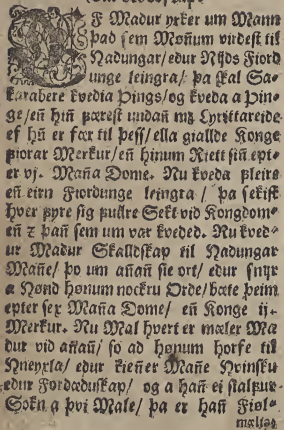 EF Madur yrker um Mann
þad sem Mønum virdest til
Nadungar/ edur Nijds Fiord
unge leingra/ þa skal Sa-
karabere kvedia Þings/ og kveda a Þin-
ge/ eñ hiñ þærest undañ mz Lyrittareide
ef hñ er fær til þess/ ella giallde Konge
þriar Merkur/ eñ hinum Riett siñ ept-
er vj. Maña Dome. Nu kveda þleire
eñ eirn Fiordunge leingra/ þa sekist
hver fyre sig fullre Sekt vid Kongdom-
eñ z þañ sem um var kveded. Nu kved-
ur Madur Skalldskap til Nadungar
Mañe/ þo um añañ sie ort/ edur snyr
a Hønd hønum nockru Orde/ bæte þeim
epter sex Maña Dome/ eñ Konge ij-
Merkur. Nu Mal hvert er mæler Ma
dur vid añañ/ so ad hønum horfe til
Hneyxla/ edur kieñer Mañe Hvinsku
edur Fordæduskap/ og a hañ ei sialfur
Sokn a þvi Male/ þa er hañ Fiøl-
mæltog